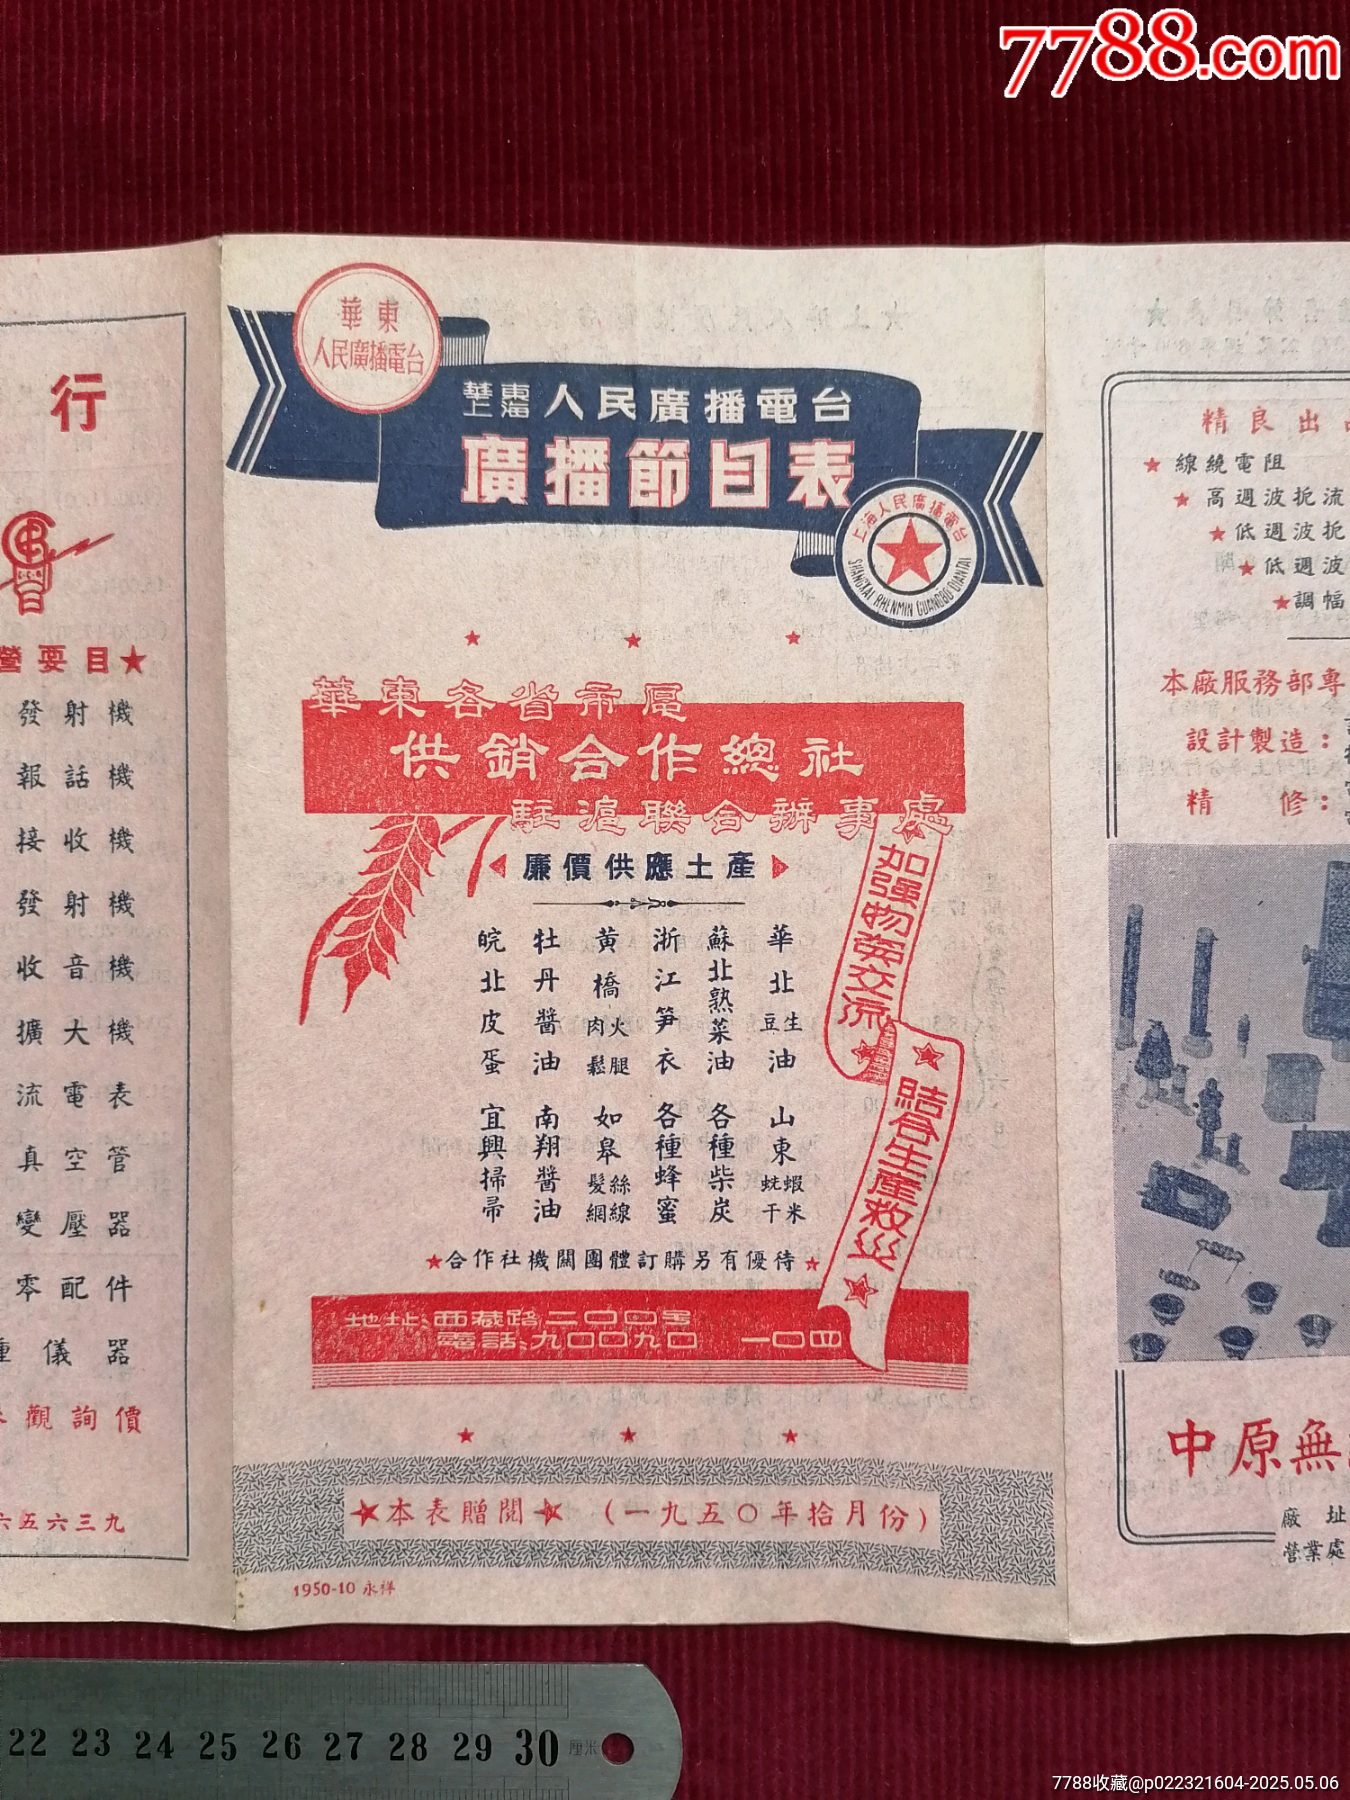 7788.com
行
營要目★
發射機
報話機
接收機
發射機
收音機
擴大機
流電表
真空管
變壓器
零配件
儀器
觀詢價
六五六三九
華東
人民廣播電台
華東
上海
人民廣播電台
廣播節目表
上海人民廣播電台
SHANGXAI RHENMIN GUANGBO DIANTAI
華東各省市區
供銷合作總社
駐滬聯合辦事處
廉價供應土產
華北生豆油 山東蝦米蚝干
蘇北熟菜油 各種柴炭
浙江笋衣 各種蜂蜜
黃橋火腿肉鬆 如皋絲線髮網
牡丹醬油 南翔醬油
皖北皮蛋 宜興掃帚
加强物資交流
結合生產救災
★合作社機關團體訂購另有優待★
地址:西藏路二〇〇四号
電話:九〇〇九〇 一〇四
★本表贈閱★ (一九五〇年拾月份)
1950-10 永祥
精良出
★線繞電阻
★高週波扼流
★低週波扼
★低週波
★調幅
本廠服務部專
設計製造:
精 修:
中原無
廠 址
營業處
22 23 24 25 26 27 28 29 30 厘米
7788收藏@p022321604-2025.05.06